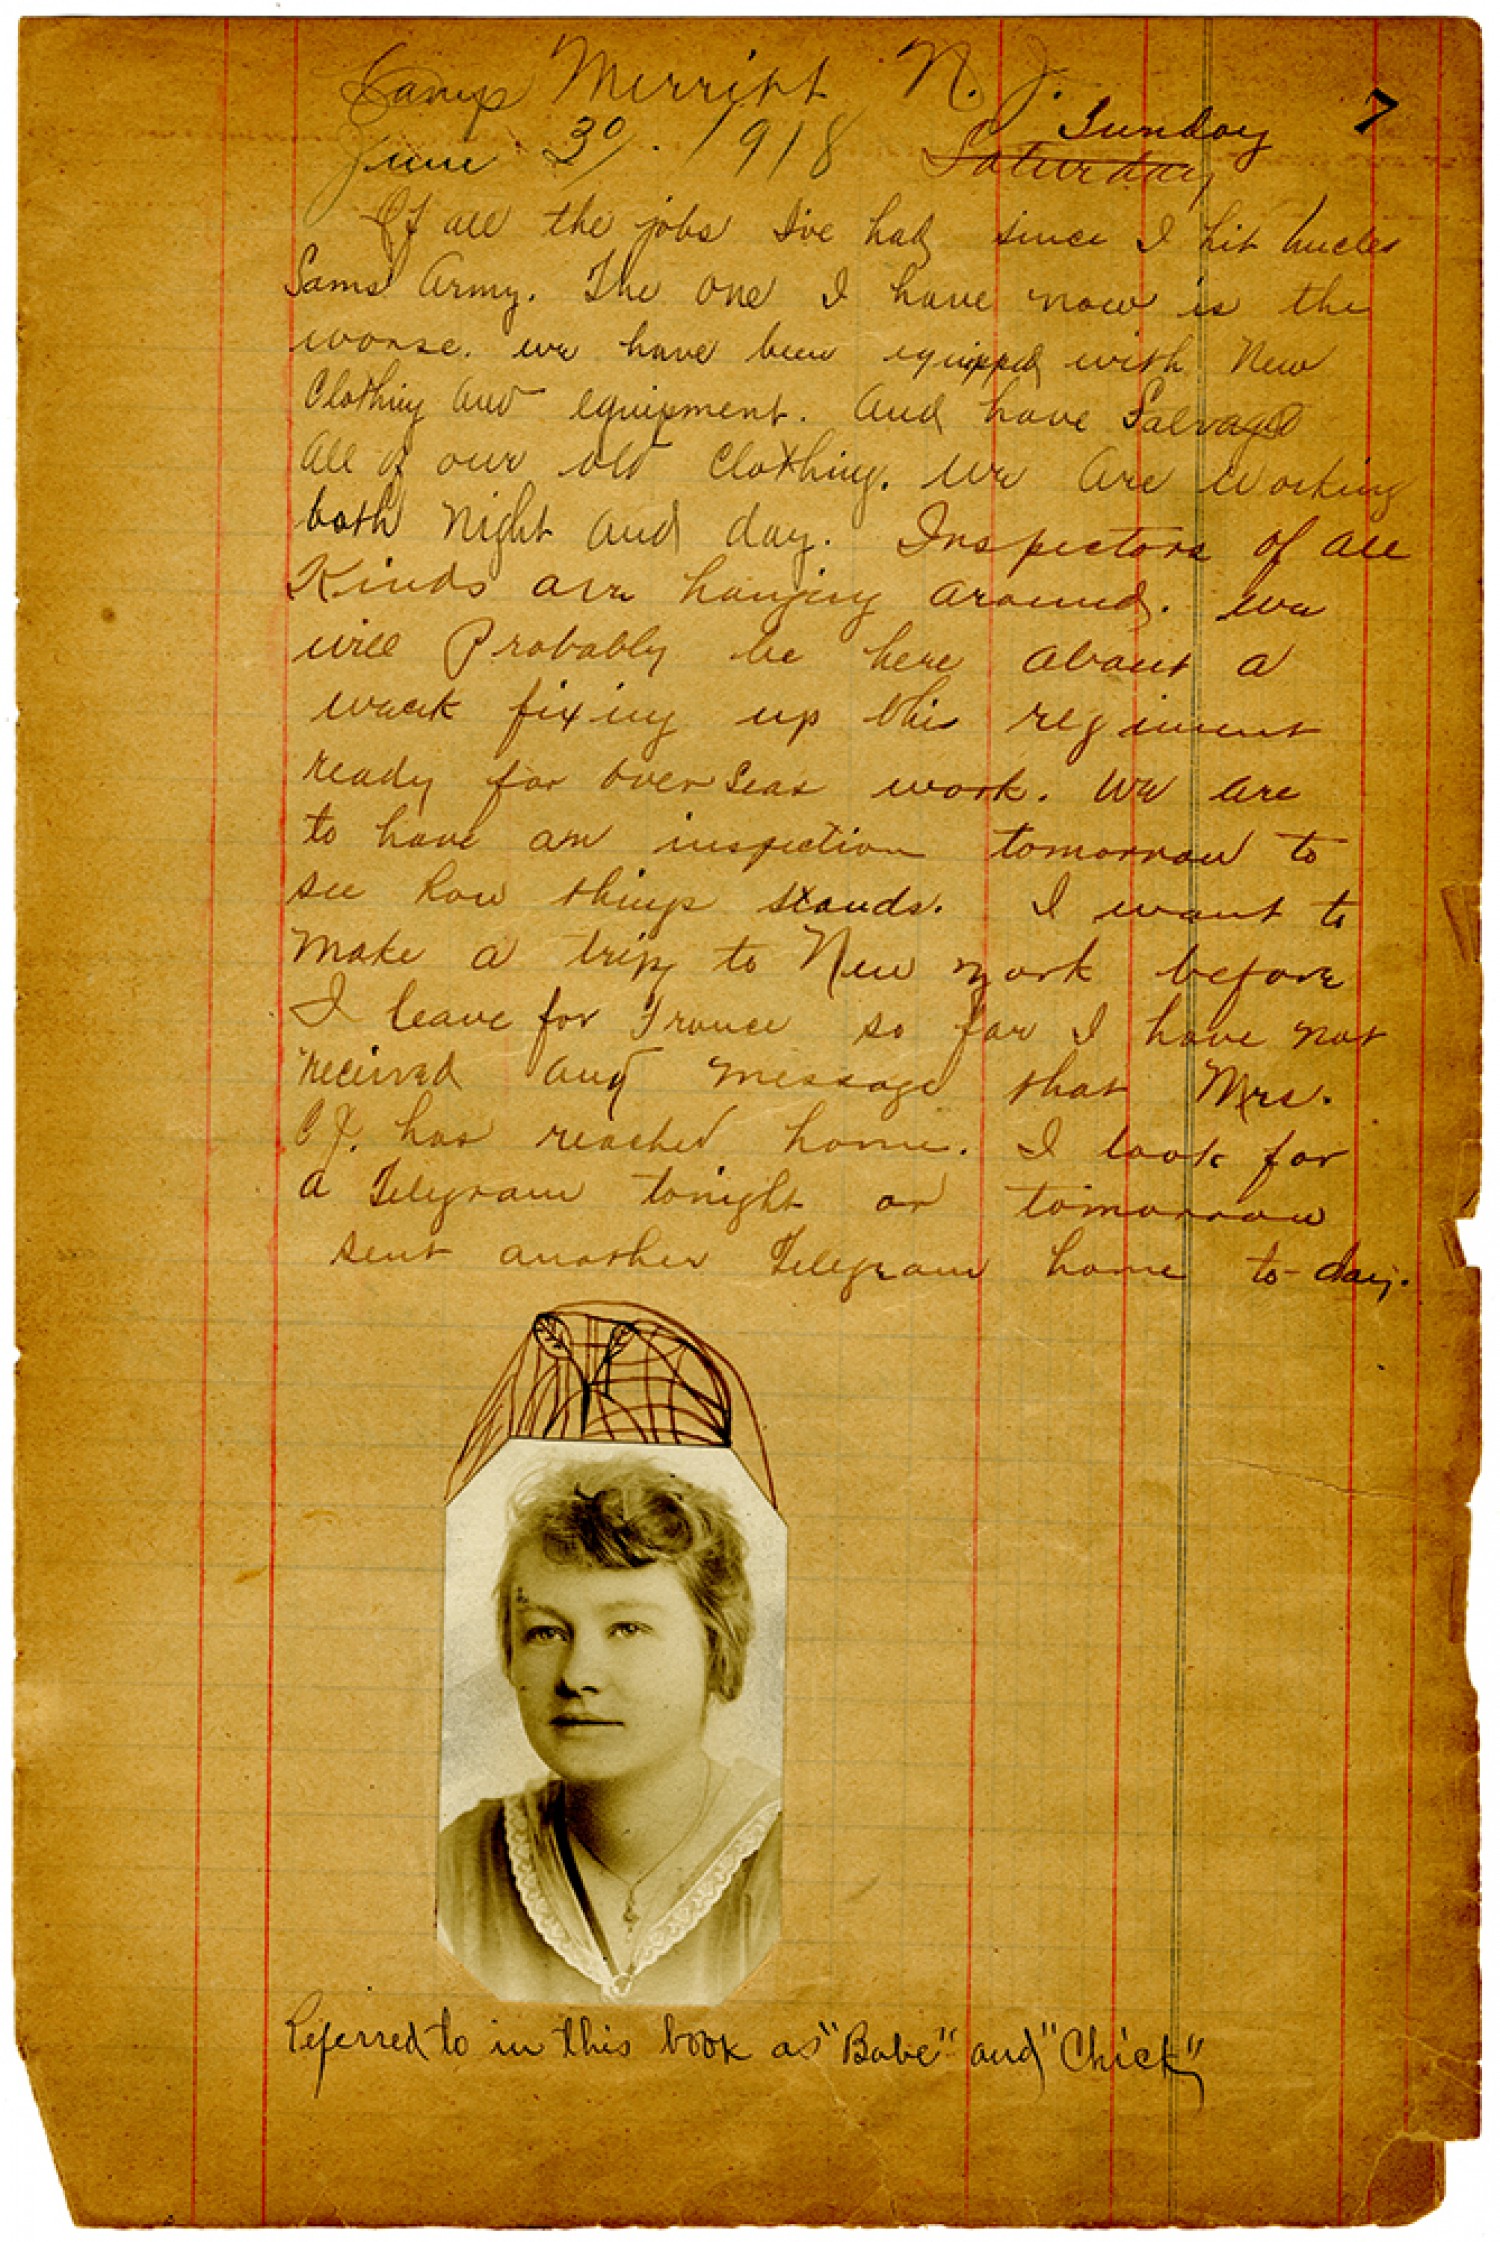 Camp Merritt N. J.
7
June 30. 1918 Saturday Sunday
Of all the jobs I've had since I hit Uncles
Sams Army. The one I have now is the
worse. we have been equipped with New
Clothing and equipment. And have Salvaged
all of our old Clothing. We are working
both night and day. Inspectors of all
Kinds are hanging around. We
will Probably be here about a
week fixing up this regiment
ready for over seas work. We are
to have an inspection tomorrow to
see how things stands. I want to
make a trip to New york before
I leave for France so far I have not
received any message that Mrs.
C J. has reached home. I look for
a Telegram tonight or tomorrow
sent another Telegram home to-day.
Referred to in this book as "Babe" and "Chick"